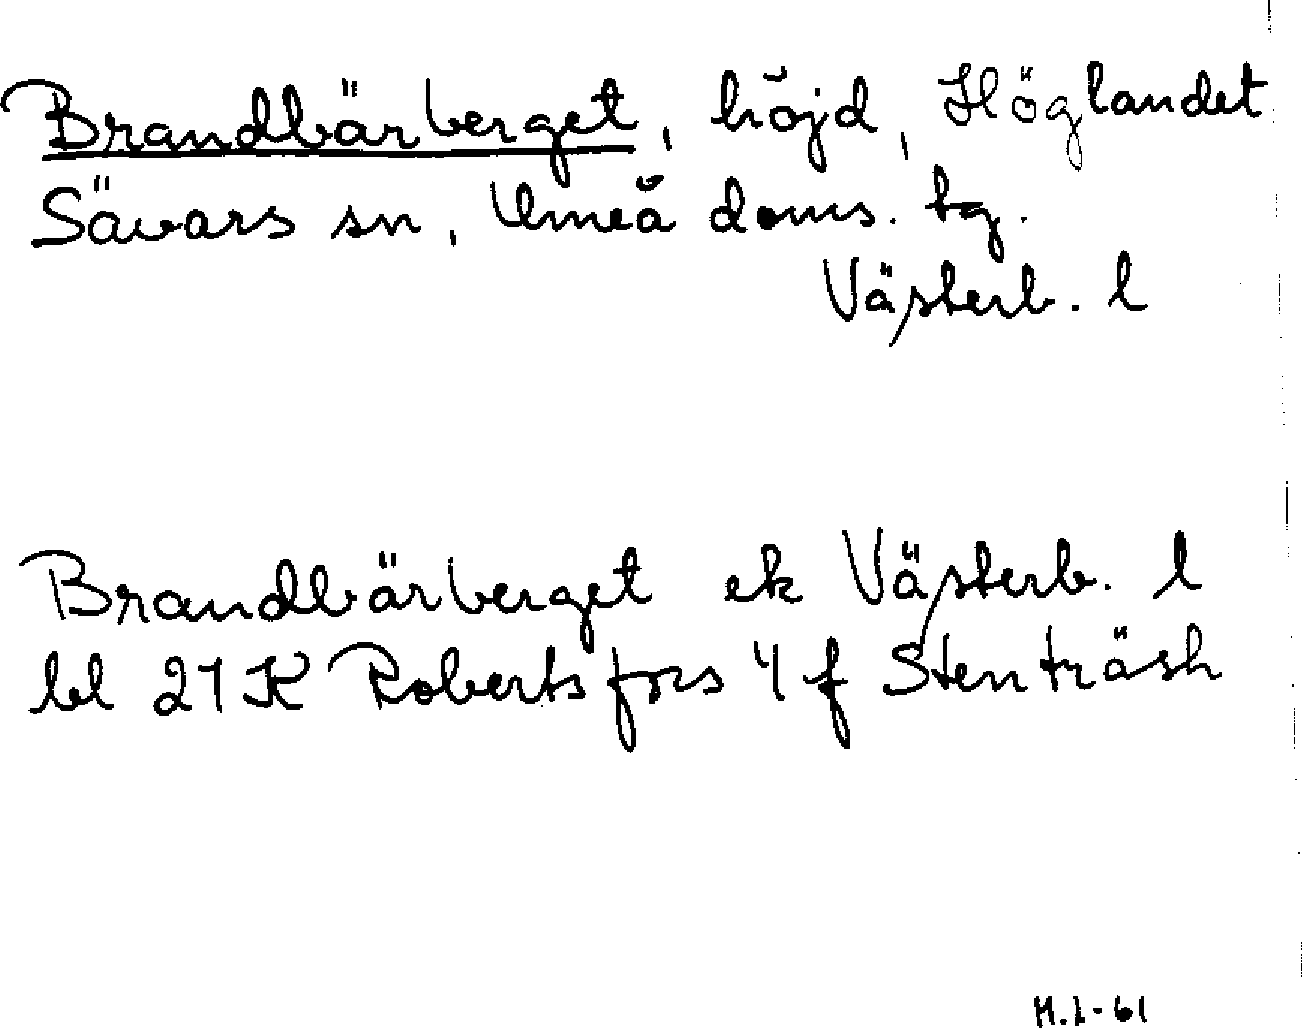 Brandbärberget, höjd, Höglandet
Sävars sn, Umeå doms. tg.
Västerb. l
Brandbärberget ek Västerb. l
bl 21 K Robertsfors 4 f Stenträsk
M.L-61